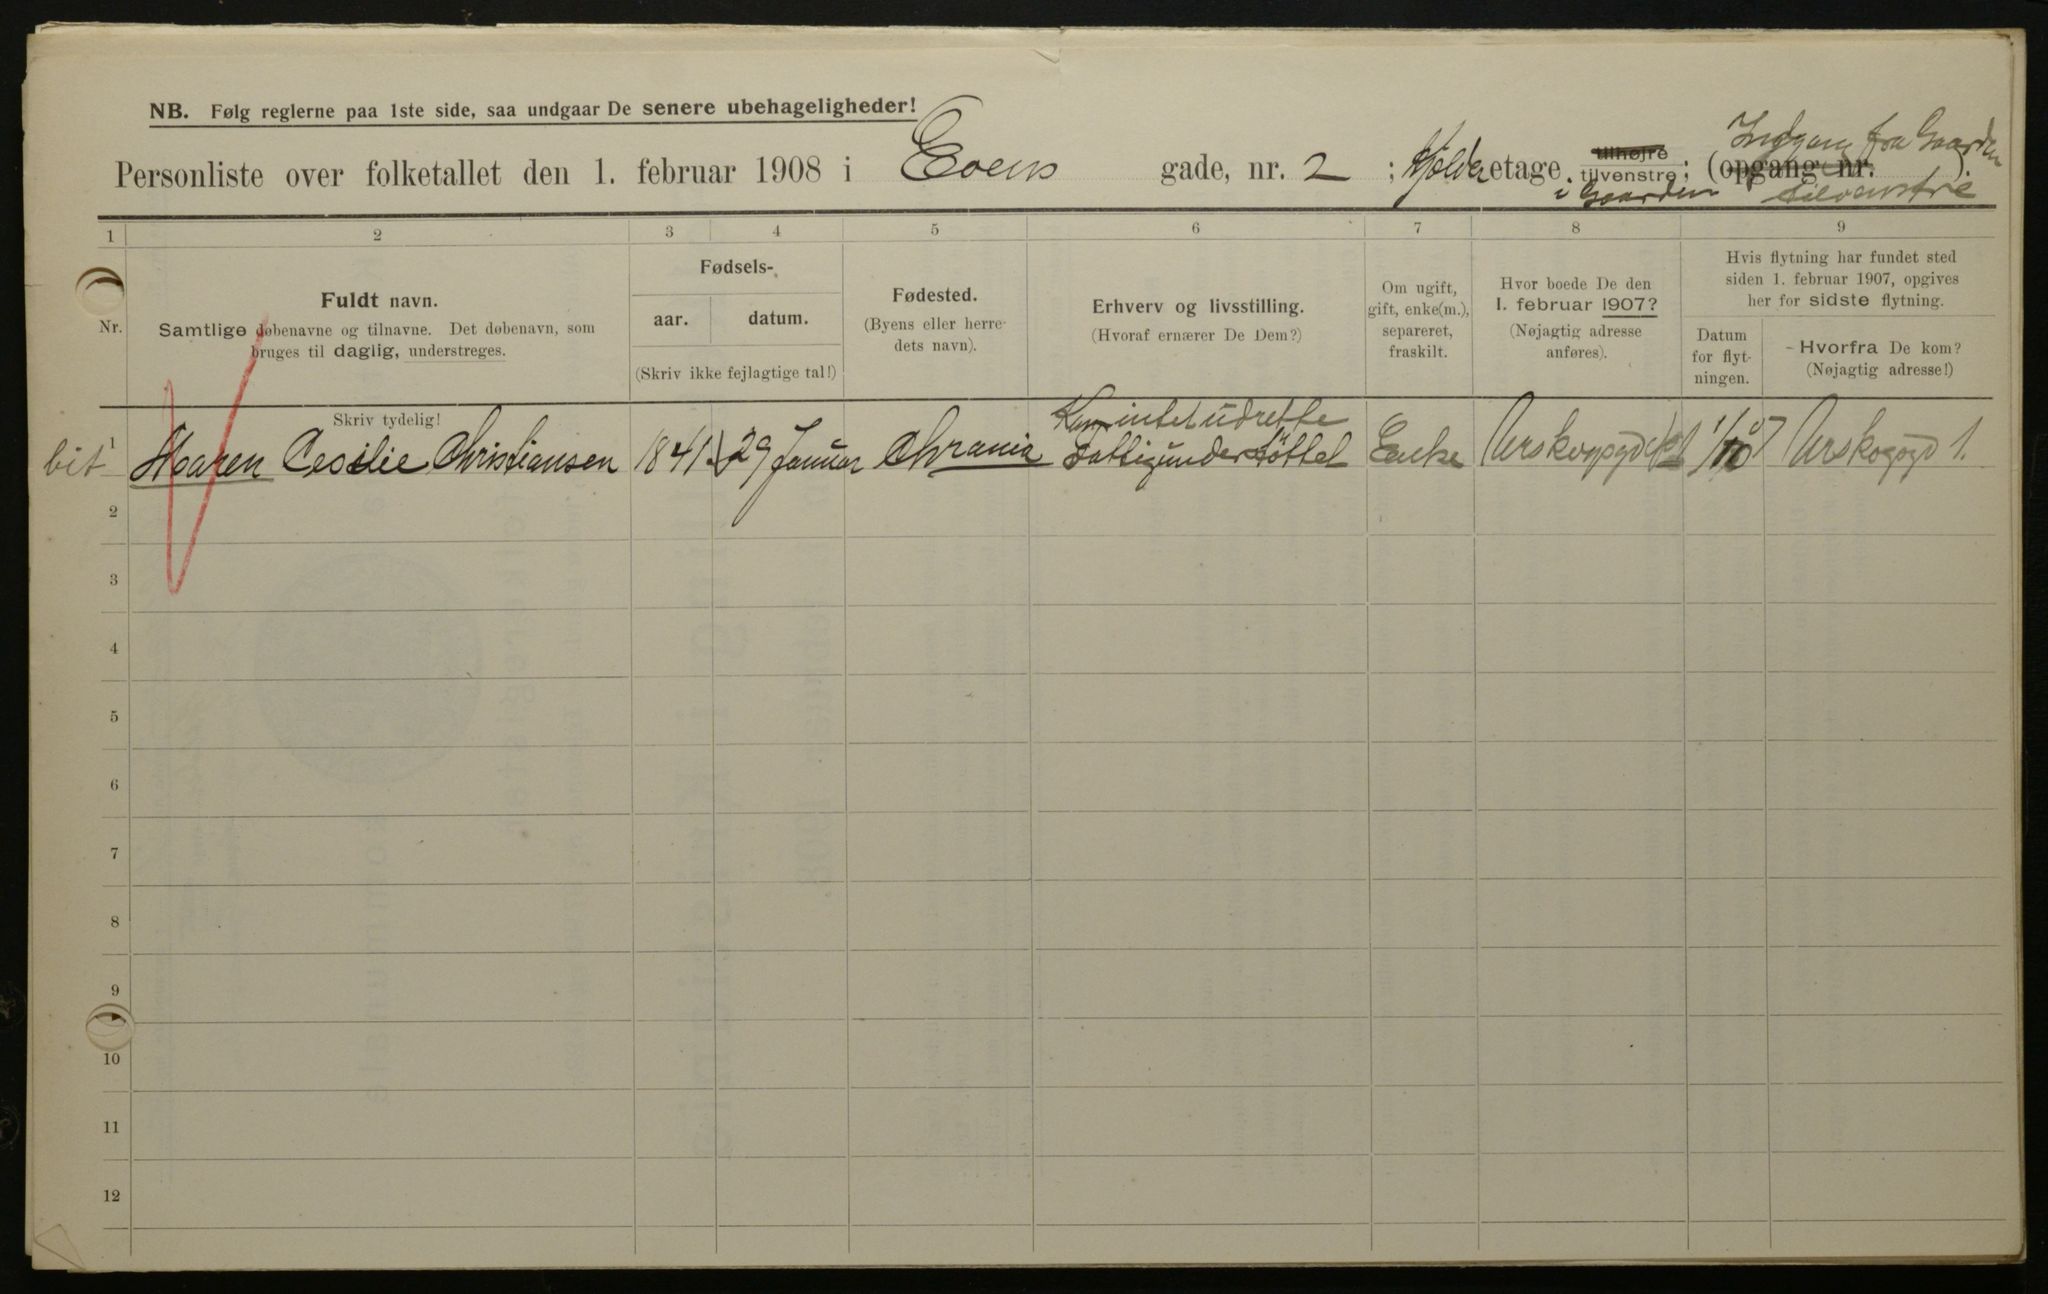 NB. Følg reglerne paa 1ste side, saa undgaar De senere ubehageligheder!
Indgang fra Gaarden
Personliste over folketallet den 1. februar 1908 i Evens gade, nr. 2 ; Kjelder etage tilhøjre tilvenstre ; (opgang nr. ).
i Gaarden tilvenstre
1 2 3 4 5 6 7 8 9
Nr.
Fuldt navn.
Samtlige døbenavne og tilnavne. Det døbenavn, som
bruges til daglig, understreges.
Skriv tydelig!
Fødsels-
aar. datum.
(Skriv ikke fejlagtige tal!)
Fødested.
(Byens eller herre-
dets navn).
Erhverv og livsstilling.
(Hvoraf ernærer De Dem?)
Om ugift,
gift, enke(m.),
separeret,
fraskilt.
Hvor boede De den
1. februar 1907?
(Nøjagtig adresse
anføres).
Hvis flytning har fundet sted
siden 1. februar 1907, opgives
her for sidste flytning.
Datum
for flyt-
ningen.
Hvorfra De kom?
(Nøjagtig adresse!)
Kan intet udrette
bit 1 Maren Cesilie Christiansen 1841 29 Januar Chrania Fattigunderstöttet Enke Urskoggd 1/10 07 Urskoggd 1.
2
3
4
5
6
7
8
9
10
11
12